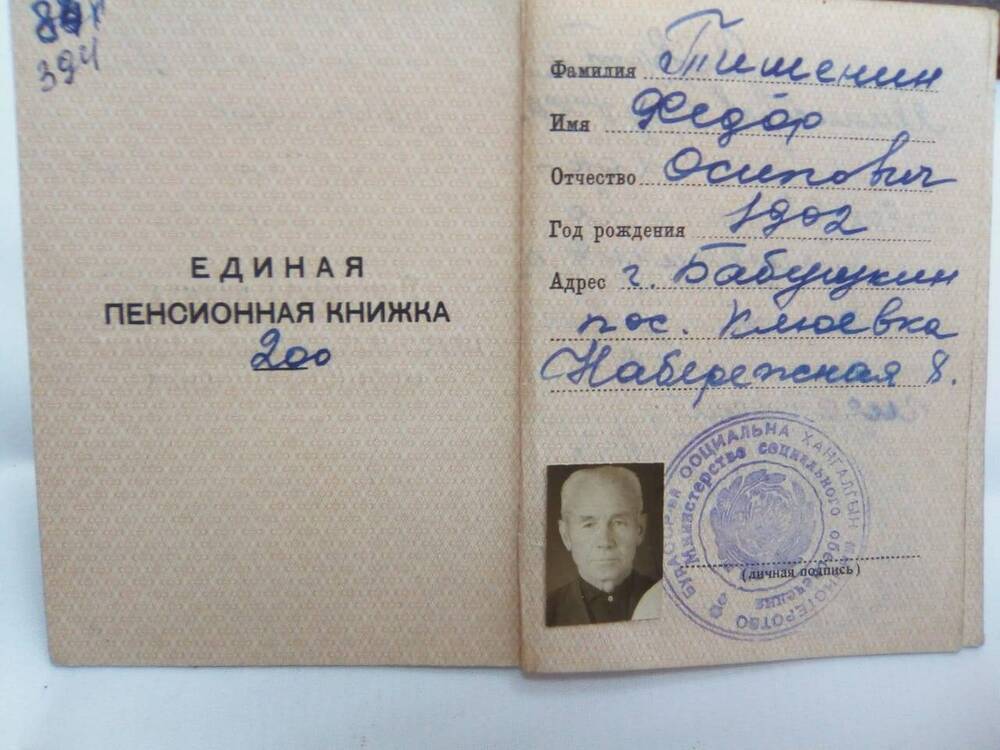 394
ЕДИНАЯ
ПЕНСИОННАЯ КНИЖКА
200
Фамилия Тишенин
Имя Федор
Отчество Осипович
Год рождения 1902
Адрес г. Бабушкин
пос. Клюевка
Набережная 8.
БУРАССР-эй СОЦИАЛЬНА ХАНГАЛГЫН МИНИСТЕРСТВО
Министерство социального обеспечения
(личная подпись)